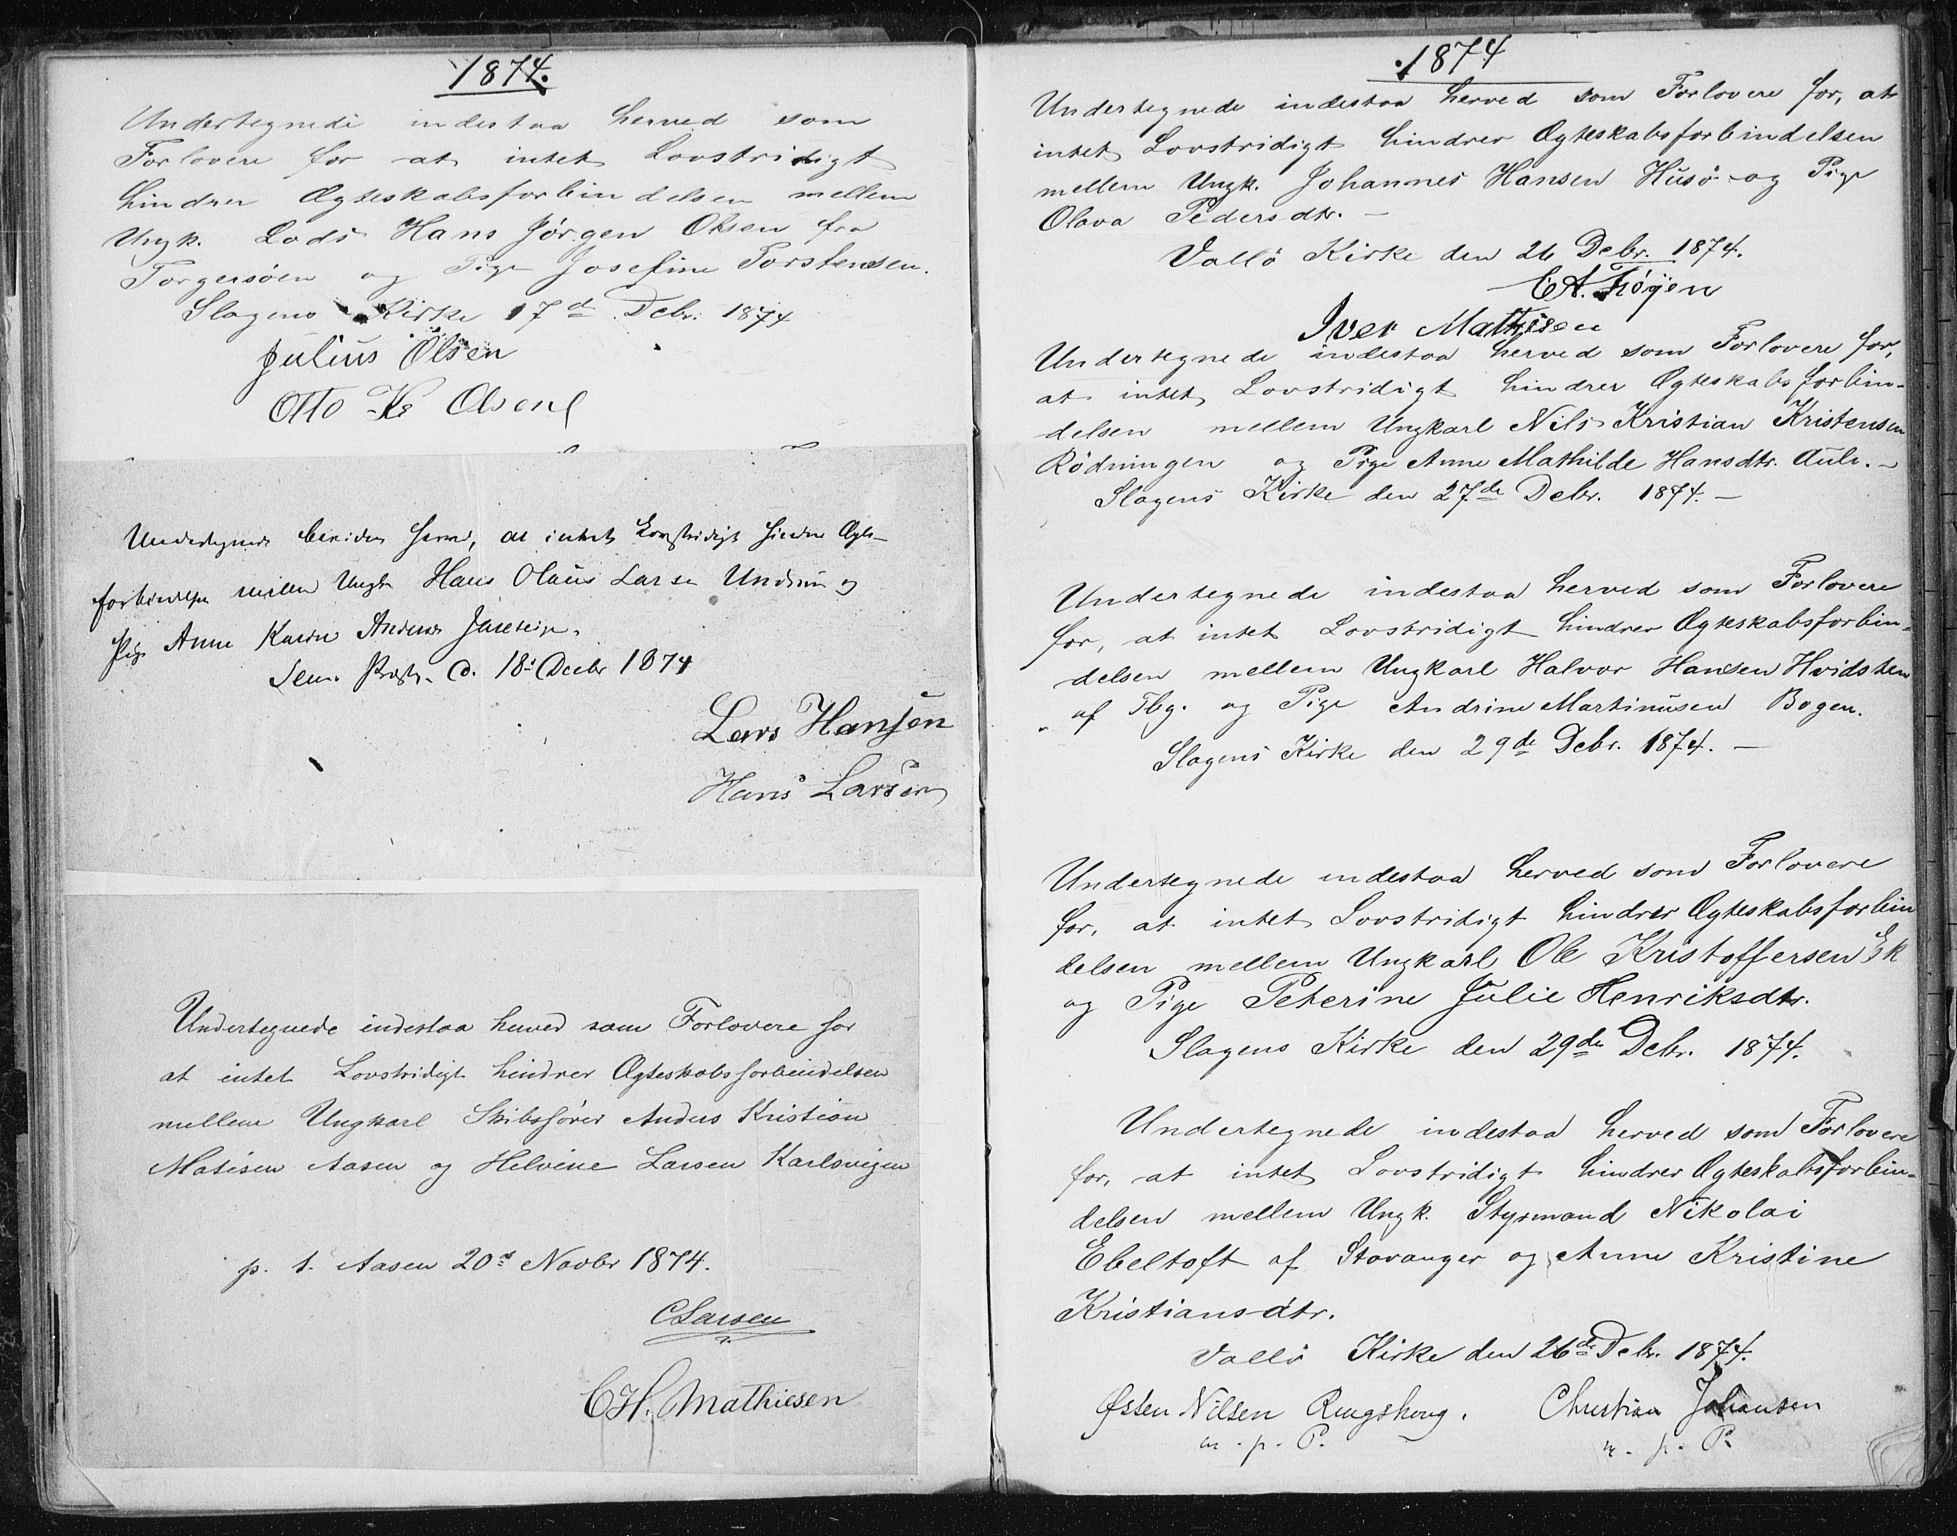 1874.
Undertegnede indestaa herved som
Forlovere for at intet Lovstridigt
hindrer Ægteskabsforbindelsen mellem
Ungk. Lods Hans Jørgen Olsen fra
Torgersøen og Pige Josefine Torstensen.
Slagens Kirke 17d Debr. 1874
Julius Olsen
Otto Kr Olsen
Undertegnede herved, at intet Lovstridigt hindrer Ægte-
forbindelse mellem Ungk Hans Olaus Larsen Undrum og
Pige Anne Karine Anders
Sem Præstg. d. 18d Decbr 1874
Lars Hansen
Hans Larsen
Undertegnede indestaa herved som Forlovere for
at intet Lovstridigt hindrer Ægteskabsforbindelsen
mellem Ungkarl Skibsfører Anders Kristian
Matisen Aasen og Helvine Larsen Karlsvigen
p. t. Aasen 20d Novbr 1874.
C Larsen
C H. Mathiesen
1874
Undertegnede indestaa herved som Forlovere for, at
intet Lovstridigt hindrer Ægteskabsforbindelsen
mellem Ungk. Johannes Hansen Husø og Pige
Olava Pedersdtr. –
Vallö Kirke den 26 Debr. 1874.
C A. Frøyen
Iver Mathisen
Undertegnede indestaa herved som Forlovere for,
at intet Lovstridigt hindrer Ægteskabsforbin-
delsen mellem Ungkarl Nils Kristian Kristensen
Rödningen og Pige Anne Mathilde Hansdtr. Auli. –
Slagens Kirke den 27de Debr. 1874. –
Undertegnede indestaa herved som Forlovere
for, at intet Lovstridigt hindrer Ægteskabsforbin-
delsen mellem Ungkarl Halvor Hansen Hvidsten
af Tbg. og Pige Andrine Martinusen Bogen.
Slagens Kirke den 29de Debr. 1874. –
Undertegnede indestaa herved som Forlovere
for, at intet Lovstridigt hindrer Ægteskabsforbin
delsen mellem Ungkarl Ole Kristoffersen Ek
og Pige Peterine Julie Henriksdtr.
Slagens Kirke den 29de Debr. 1874.
Undertegnede indestaa herved som Forlovere
for, at intet Lovstridigt hindrer Ægteskabsforbin-
delsen mellem Ungk. Styrmand Nikolai
Ebeltoft af Stavanger og Anne Kristine
Kristiansdtr.
Vallö Kirke den 26de Debr. 1874.
Østen Nilsen Ringshoug. Christian Johansen
m. p. P. m. p. P.